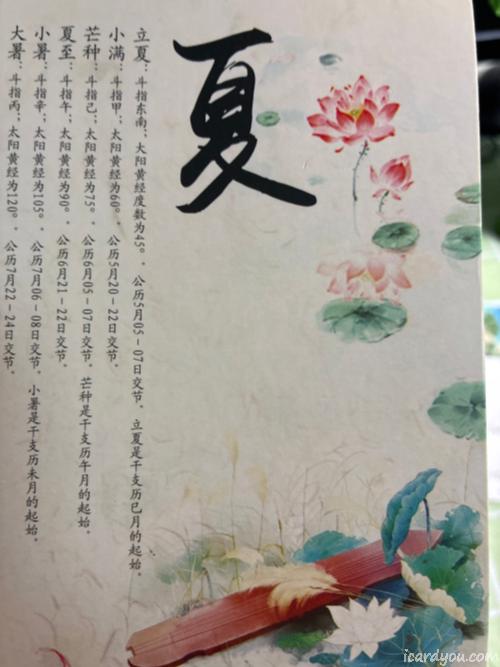 夏
立夏：斗指东南；太阳黄经度数为45°。公历5月05-07日交节。立夏是干支历巳月的起始。
小满：斗指甲，太阳黄经为60°，公历5月20-22日交节。
芒种：斗指己，太阳黄经为75°，公历6月05-07日交节。芒种是干支历午月的起始。
夏至：斗指午，太阳黄经为90°，公历6月21-22日交节。
小暑：斗指辛，太阳黄经为105°，公历7月06-08日交节。小暑是干支历未月的起始。
大暑：斗指丙，太阳黄经为120°，公历7月22-24日交节。
icardyou.com